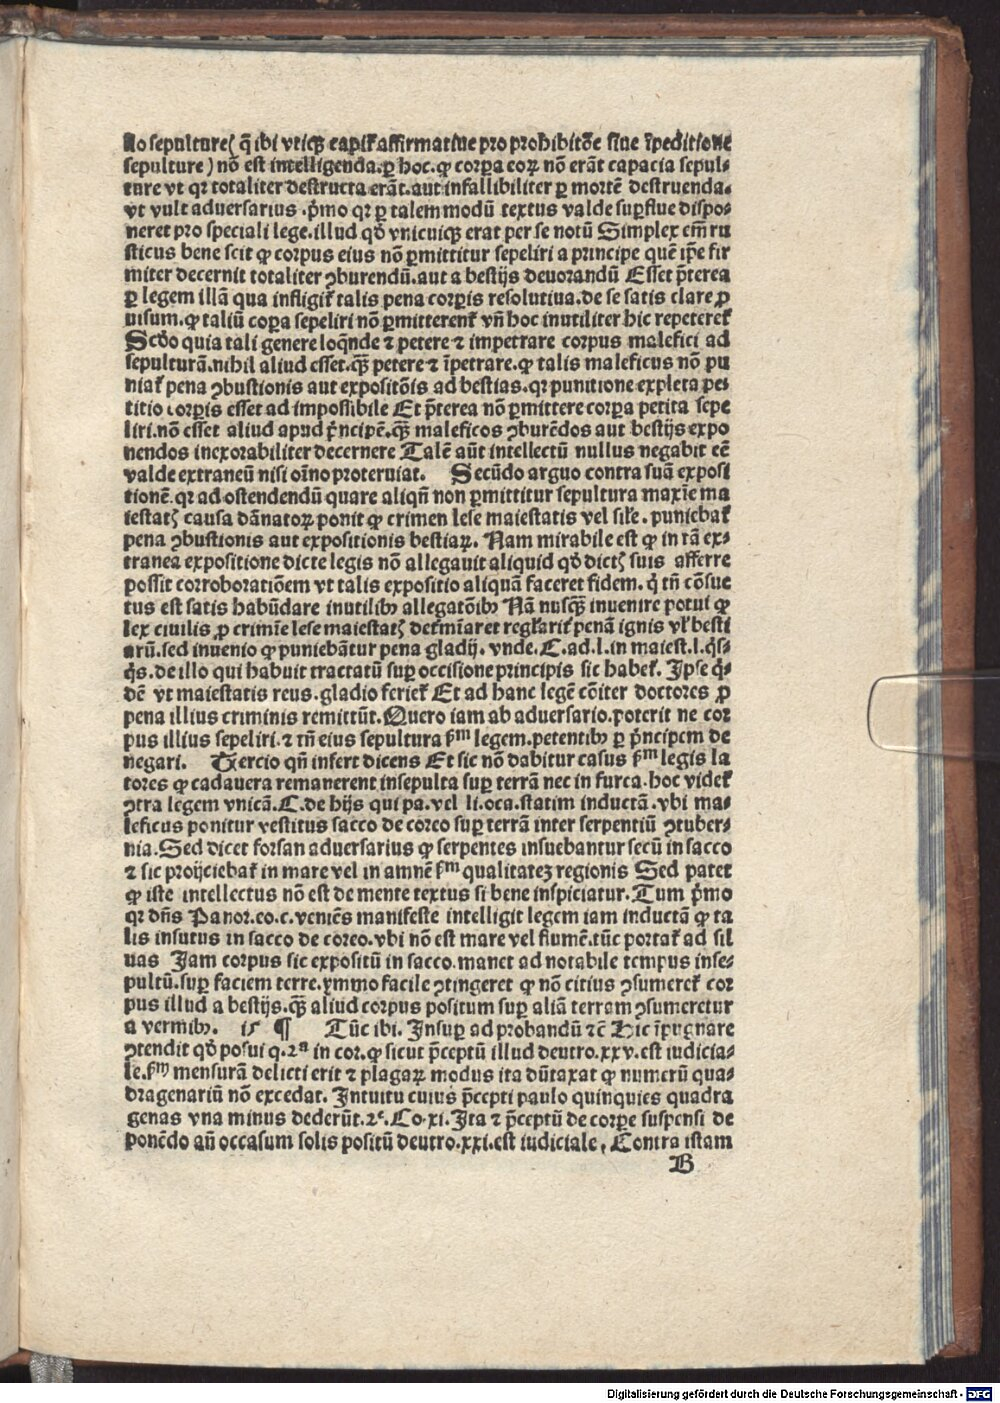 lo sepulture( q̄ ibi vtiqꝫ capit᷑ affirmatiue pro prohibitōe siue īpeditione
sepulture) nō est intelligenda.ꝑ hoc.ꝙ corꝑa eoꝝ nō erāt capacia sepul⸗
ture vt qꝛ totaliter destructa erāt.aut infallibiliter ꝑ mortē destruenda.
vt vult aduersarius .p̄mo qꝛ ꝑ talem modū textus valde suꝑflue dispo⸗
neret pro speciali lege.illud qđ vnicuiqꝫ erat per se notū Simplex em̄ ru
sticus bene scit ꝙ corpus eius nō ꝑmittitur sepeliri a principe quē ip̄e fir
miter decernit totaliter ꝯburendū.aut a bestijs deuorandū Esset p̄terea
ꝑ legem illā qua infligit᷑ talis pena corꝑis resolutiua.de se satis clare ꝓ
uisum.ꝙ taliū corꝑa sepeliri nō ꝑmitterent᷑ vn̄ hoc inutiliter hic repeteret᷑
Scd̄o quia tali genere loq̄nde ⁊ petere ⁊ impetrare corpus malefici ad
sepulturā.nihil aliud esset.qꝫ̄ petere ⁊ īpetrare.ꝙ talis maleficus nō pu
niat᷑ pena ꝯbustionis aut expositōis ad bestias.qꝛ punitione expleta pe⸗
titio corꝑis esset ad impossibile Et p̄terea nō ꝑmittere corꝑa petita sepe
liri.nō esset aliud apud p̄ncipē.qꝫ̄ maleficos ꝯburēdos aut bestijs expo
nendos inexorabiliter decernere Talē aūt intellectū nullus negabit eē
valde extraneū nisi oīno proteruiat. Secūdo arguo contra suā exposi
tionē.qꝛ ad ostendendū quare aliqn̄ non ꝑmittitur sepultura maxīe ma
iestatꝭ causa dānatoꝝ ponit ꝙ crimen lese maiestatis vel sił̄e . puniebat᷑
pena ꝯbustionis aut expositionis bestiaꝝ. Nam mirabile est ꝙ in tā ex⸗
tranea expositione dicte legis nō allegauit aliquid qđ dictꝭ suis afferre
possit corroboratiōem vt talis expositio aliquā faceret fidem. q̇ tn̄ cōsue
tus est satis habūdare inutilibꝫ allegatōibꝫ Nā nusqꝫ̄ inuenire potui ꝙ
lex ciuilis ꝓ crimīe lese maiestatꝭ det᷑mīaret regl̄arit᷑ penā ignis vł besti
arū.sed inuenio ꝙ puniebātur pena gladij. vnde. C.ad.l.in maiest.l.q̇s⸗
q̇s.de illo qui habuit tractatū suꝑ occisione principis sic habet᷑. Ipse q̇⸗
dē vt maiestatis reus.gladio feriet᷑ Et ad hanc legē cōiter doctores ꝓ
pena illius criminis remittūt.Quero iam ab aduersario.poterit ne cor
pus illius sepeliri.⁊ tn̄ eius sepultura ẜm legem.petentibꝫ ꝑ p̄ncipem de
negari. Tercio qn̄ infert dicens Et sic nō dabitur casus ẜm legis la
tores ꝙ cadauera remanerent insepulta suꝑ terrā nec in furca.hoc videt᷑
ꝯtra legem vnicā.C.de hijs qui pa.vel li.oca.statim inductā .vbi ma⸗
leficus ponitur vestitus sacco de coreo suꝑ terrā inter serpentiū ꝯtuber⸗
nia.Sed dicet forsan aduersarius ꝙ serpentes insuebantur secū in sacco
⁊ sic proijciebat᷑ in mare vel in amnē ẜm qualitateꝫ regionis Sed patet
ꝙ iste intellectus nō est de mente textus si bene inspiciatur.Tum p̄mo
qꝛ dn̄s Panor.eo.c.veniēs manifeste intelligit legem iam inductā ꝙ ta
lis insutus in sacco de coreo.vbi nō est mare vel flumē.tūc portat᷑ ad sil
uas Iam corpus sic expositū in sacco.manet ad notabile tempus inse⸗
pultū.suꝑ faciem terre.ymmo facile ꝯtingeret ꝙ nō citius ꝯsumeret᷑ cor
pus illud a bestijs.qꝫ̄ aliud corpus positum suꝑ aliā terram ꝯsumeretur
a vermibꝫ. 15 ¶ Tūc ibi. Insuꝑ ad probandū ⁊c̄ Hic īpugnare
ꝯtendit qđ posui q.2ᵃ in cor.ꝙ sicut p̄ceptū illud deutro.xxv.est iudicia⸗
le.ẜm mensurā delicti erit ⁊ plagaꝝ modus ita dūtaxat ꝙ numerū qua⸗
dragenariū nō excedat. Intuitu cuius p̄cepti paulo quinquies quadra
genas vna minus dederūt.2ᵉ.Co.xi.Ita ⁊ p̄ceptū de corꝑe suspensi de
ponēdo an̄ occasum solis positū deutro.xxi.est iudiciale, Contra istam
B
Digitalisierung gefördert durch die Deutsche Forschungsgemeinschaft - DFG